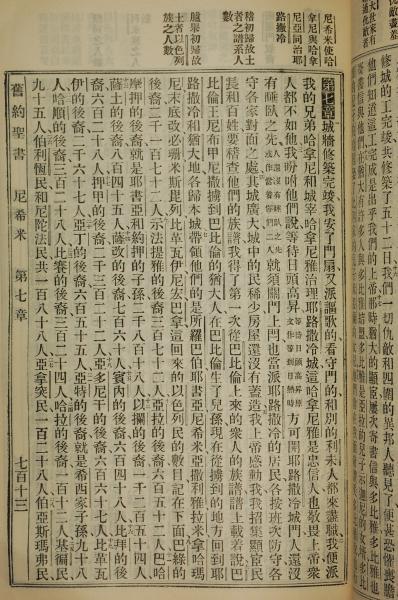 修城的工完竣共修築了五十二日我們一切仇敵和四圍的異邦人聽見了便甚恐懼喪膽
他們知道這工完成是出乎我們的上帝那時猶大的顯宦屢次寄書信與多比雅多比雅也
尼希米使哈
拿尼與哈拿
尼亞同治耶
路撒冷
稽初歸故土
者之譜系人
數
臚舉初歸故
土者以色列
族之人數
第七章 城牆修築完竣我安了門扇又派謳歌的看守門的和別的利未人都來盡職我便派
我的兄弟哈拿尼和城宰哈拿尼雅治理耶路撒冷城這哈拿尼雅是忠信人也敬畏上帝衆
人都不如他我吩咐他們說等待日頭高昇等待日頭高昇原文作等到日頭熱時方可開耶路撒冷城門人還沒
有睡臥之先人還沒有睡臥之先原文作當着他們二人就須關門上閂也當派耶路撒冷的居民各按班次防守各
守各家對面之處其城廣大城中的民稀少房屋還沒有蓋造我上帝感動我我招集顯宦民
長和百姓要稽查他們的族譜我得了第一次從巴比倫上來的衆人的族譜譜上載着說巴
比倫王尼布甲尼撒擄到巴比倫的猶大人在巴比倫生了兒孫現在從擄到的地方回到耶
路撒冷和猶大地各歸本城帶領他們的是所羅巴伯耶書亞尼希米亞撒利雅拉米拿哈瑪
尼末底改必珊米斯毘列比革瓦伊尼宏巴拿這回來的以色列民的數目記在下面巴錄的
後裔二千一百七十二人示法提雅的後裔三百七十二人亞拉的後裔六百五十二人巴哈
摩押的後裔就是耶書亞和約押的子孫二千八百十八人以攔的後裔一千二百五十四人
薩土的後裔八百四十五人薩改的後裔七百六十人賓內的後裔六百四十八人比拜的後
裔六百二十八人押甲的後裔二千三百二十二人亞多尼干的後裔六百六十七人比革瓦
伊的後裔二千零六十七人亞丁的後裔六百五十五人亞特的後裔就是希西家子孫九十八
人哈順的後裔三百二十八人比賽的後裔三百二十四人哈拉的後裔一百十二人基徧民
九十五人伯利恆民和尼陀法民共一百八十八人亞拿突民一百二十八人伯亞斯瑪弗民
舊約聖書 尼希米 第七章 七百十三